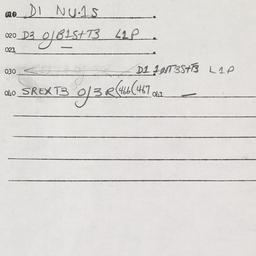 010 D1 NU.1S
020 D3 O/B1S+T3 L1P
021
030 D1 1NT3S+T3 L1P
040 SREXT3 O/3R(466(467 061